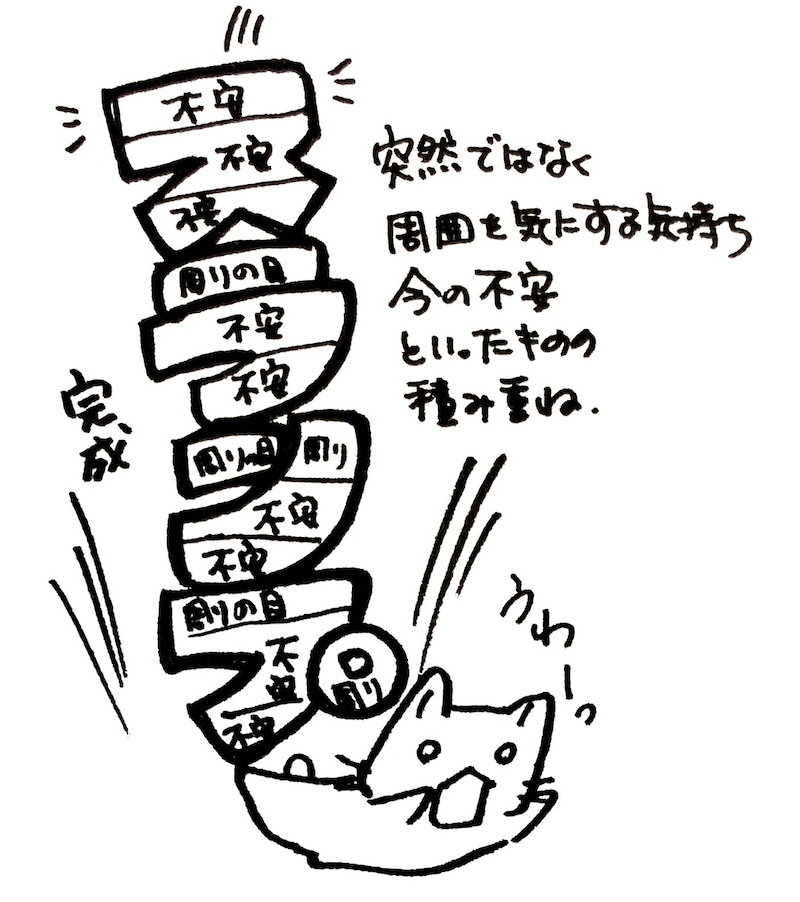 スランプ
不安
不安
不安
周りの目
不安
不安
周りの目
周り
不安
不安
周りの目
不安
不安
周り
完成
突然ではなく
周囲を気にする気持ち
今の不安
といったものの
積み重ね.
うわーっ